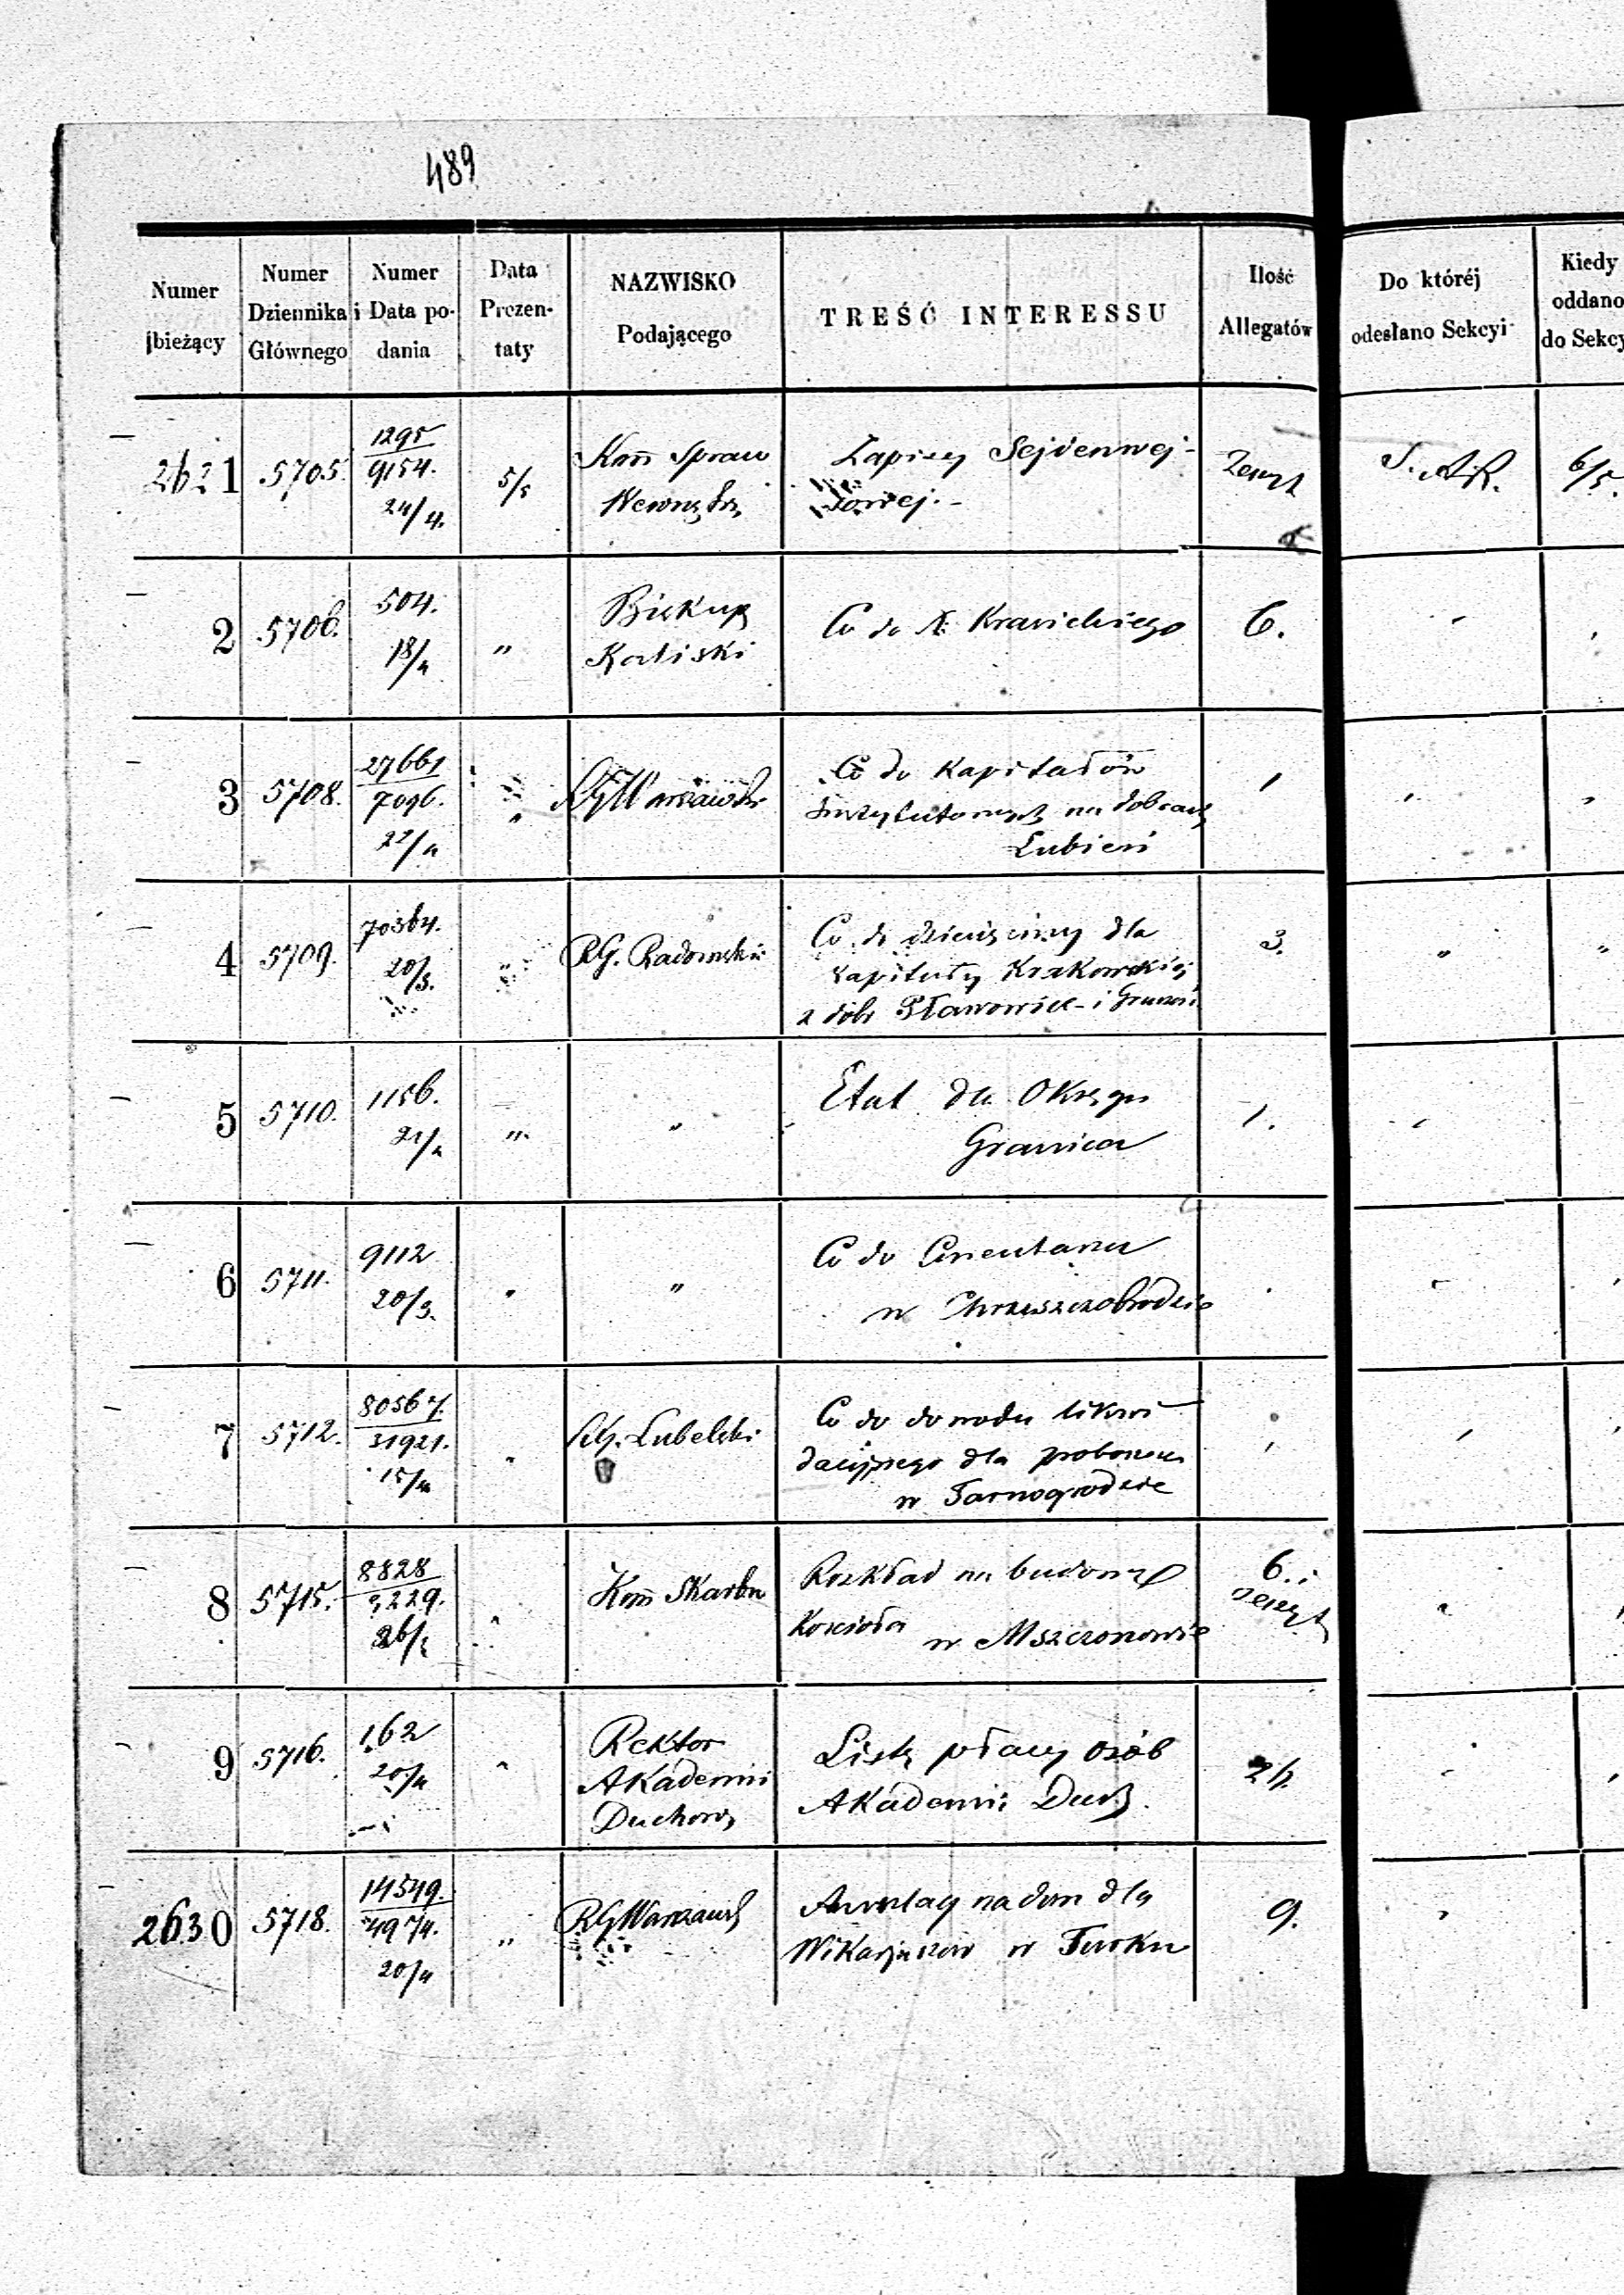 489
Numer bieżący | Numer Dziennika Głównego | Numer i Data podania | Data Prezentaty | NAZWISKO Podającego | TREŚĆ INTERESSU | Ilość Allegatów | Do któréj odesłano Sekcyi | Kiedy oddano do Sekcy
2621 5705. 1295 9154. 24/4. 5/5
Kom̄ Spraw
Wewnętrz
Zapisy
6/5.
2 5706. 504. 18/4 "
Biskup
Kaliski
Co do X Krasickiego
6.
3 5708. 27661 7096. "
RG Warszawski
Co do Kapitałów
Instytutowych na dobrach
Łubień
4 5709. 70364. 20/3. "
RG. Radomski
Co do dziesięciny dla
Kapituły Krakowskiej
z dóbr Pławowice i
3.
"
5 5710. 1156. 21/4 " "
Etat dla Okręgu
Granica
1.
6 5711. 9112 20/3. " "
Co do Cmentarza
w Chruszczobrodzie
7 5712. 80567. 31921. 15/4 "
RG. Lubelski
Co do dowodu likwi
dacyjnego dla proboszcza
w Tarnogrodzie
8 5715. 8828 "
Kom̄ Skarbu
Rozkład na budowę
Kościoła w Mszczonowie
6. i
zeszyt
9 5716. 162 20/4 "
Rektor
Akademii
Duchow
Listy płacy osób
Akademii Duch.
2630 5718. 14549. 4974. 20/4 "
RG Warszawsk
na dom dla
Wikarjuszów w Turku
9.